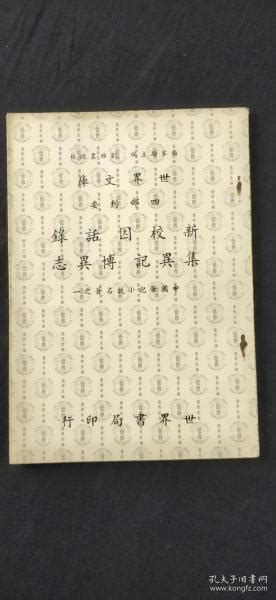 楊家駱主編 劉雅農總校
世界文庫
四部刊要
新校因話錄
集異記 博異志
中國筆記小說名著之一
世界書局印行
孔夫子旧书网